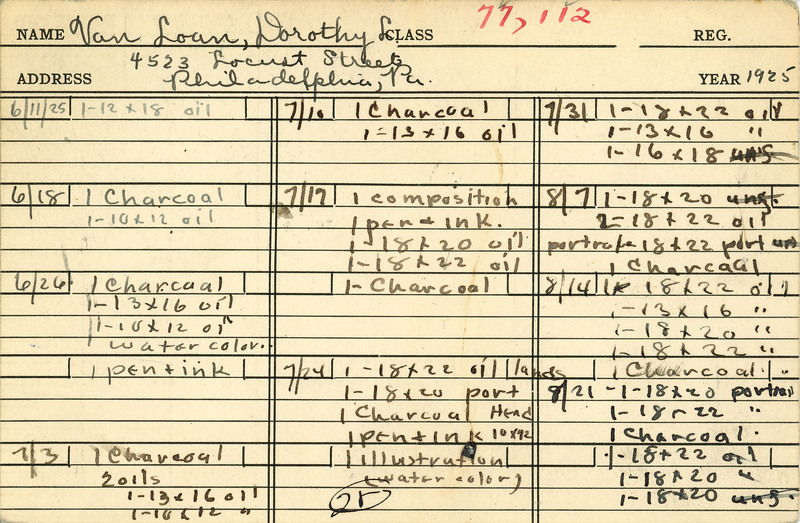 77, 112
NAME Van Loan, Dorothy L. CLASS REG.
4523 Locust Street
ADDRESS Philadelphia, Pa. YEAR 1925
6/11/25 1-12 x 18 oil
6/18 1 Charcoal
1-10x12 oil
6/26 1 Charcoal
1-13x16 oil
1-10x12 oil
water color.
1 pen + ink
7/3 1 Charcoal
2 oils
1-13x16 oil
1-10x12 "
7/10 1 Charcoal
1-13x16 oil
7/17 1 composition
1 pen + ink.
1-18x20 oil
1-18x22 oil
1-Charcoal
7/24 1-18x22 oil lands
1-18x20 port
1 Charcoal Head
1 pen + ink 10x12
1 illustration
(water color)
25
7/31 1-18x22 oil
1-13x16 "
1-16x18 uns
8/7 1-18x20 uns.
2-18x22 oil
portrait 18x22 port uns
1 Charcoal
8/14 18x22 oil
1-13x16 "
1-18x20 "
1-18x22 "
1 Charcoal. "
8/21 -1-18x20 portrait
1-18-22 "
1 Charcoal.
1-18x22 oil
1-18x20 "
1-18x20 uns.